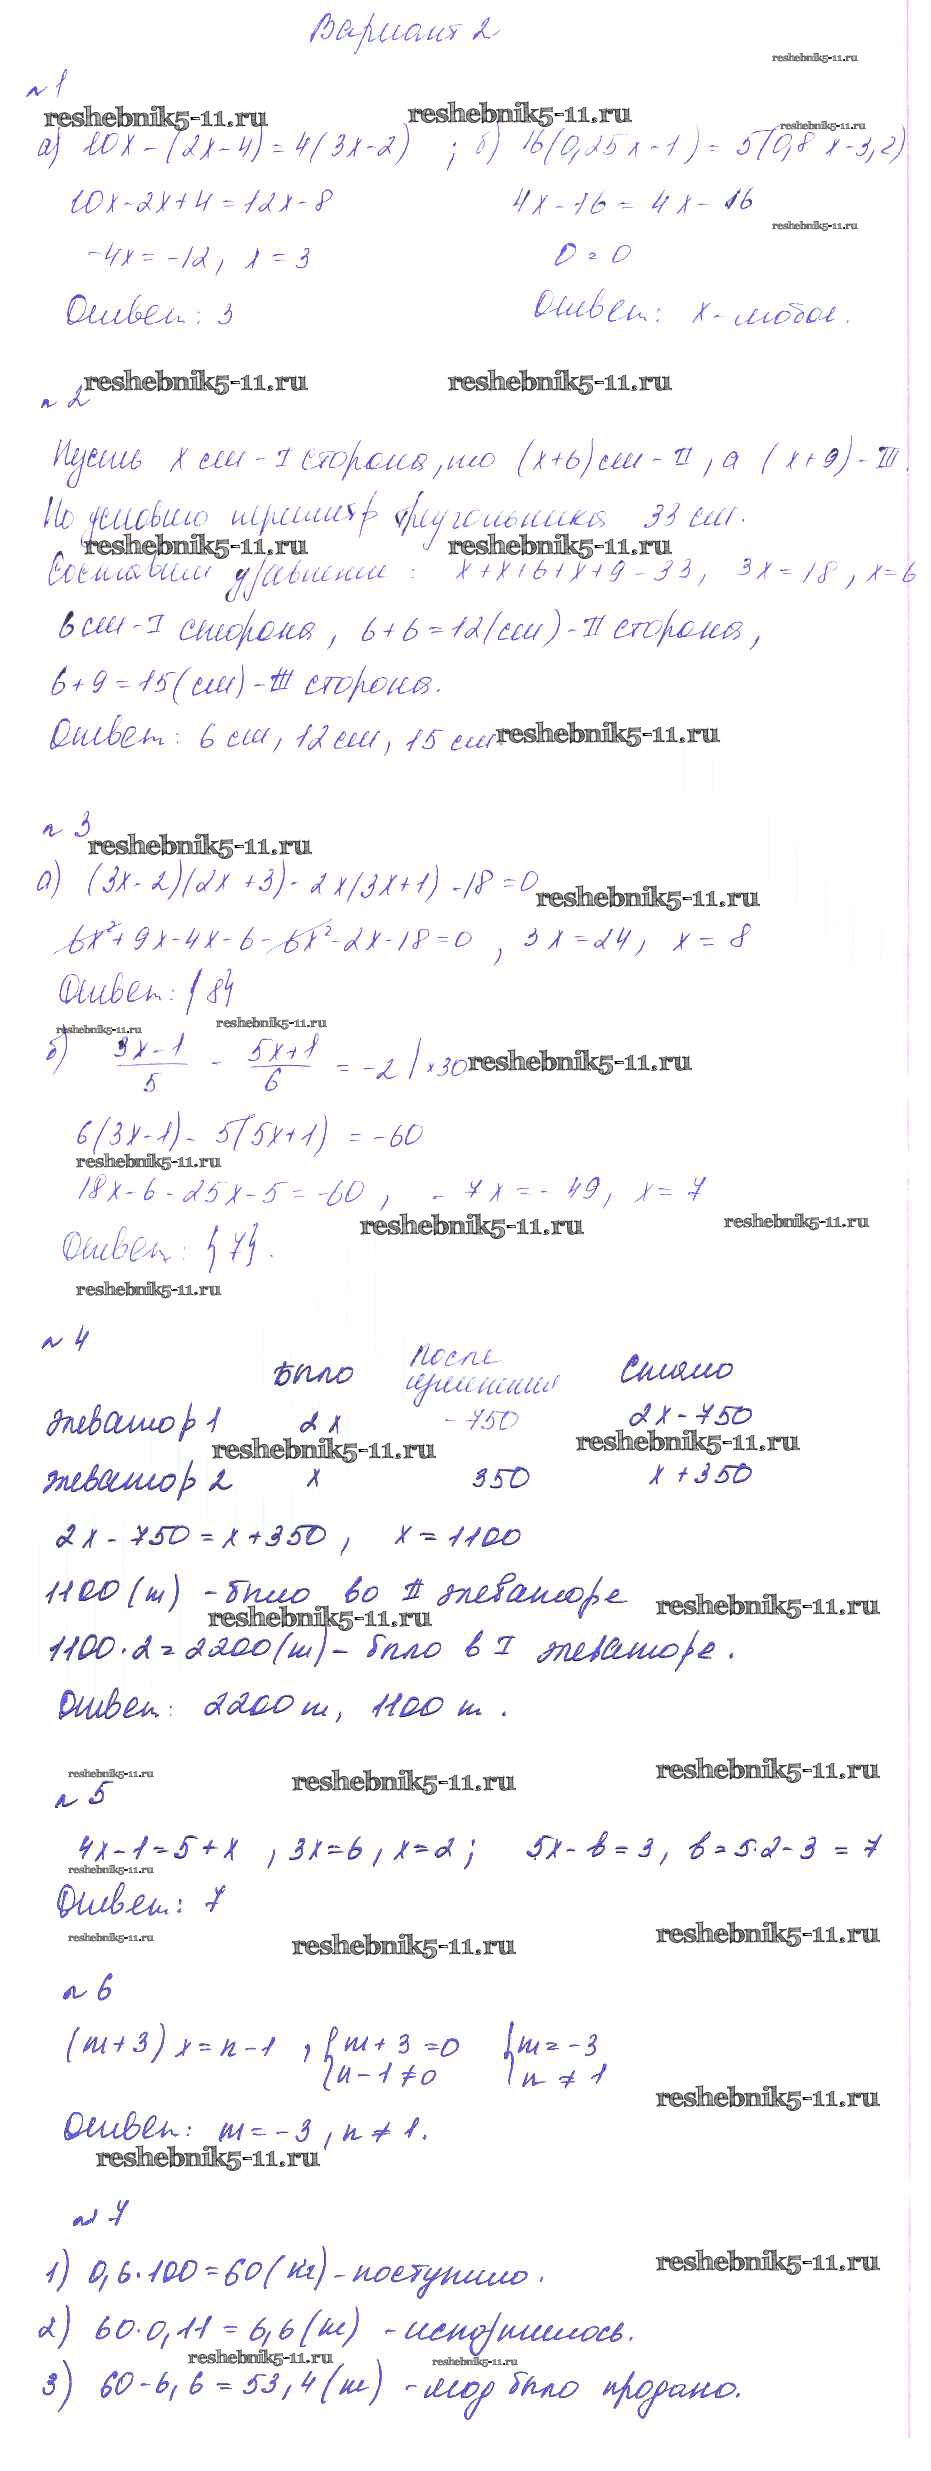 Вариант 2
reshebnik5-11.ru
№1
reshebnik5-11.ru reshebnik5-11.ru reshebnik5-11.ru
а) 10x-(2x-4)=4(3x-2) ; б) 16(0,25x-1)=5(0,8x-3,2)
10x-2x+4=12x-8 4x-16=4x-16
reshebnik5-11.ru
-4x=-12, x=3 0=0
Ответ: 3 Ответ: x-любое.
reshebnik5-11.ru reshebnik5-11.ru
№2
Пусть x см-I сторона, то (x+6)см-II, а (x+9)-III.
По условию периметр треугольника 33 см.
reshebnik5-11.ru reshebnik5-11.ru
Составим уравнение: x+x+6+x+9-33, 3x=18, x=6
6см-I сторона, 6+6=12(см)-II сторона,
6+9=15(см)-III сторона.
Ответ: 6 см, 12 см, 15 см reshebnik5-11.ru
№3
reshebnik5-11.ru
а) (3x-2)(2x+3)-2x(3x+1)-18=0 reshebnik5-11.ru
6x²+9x-4x-6-6x²-2x-18=0, 3x=24, x=8
Ответ: {8}
reshebnik5-11.ru reshebnik5-11.ru
б) (3x-1)/5 - (5x+1)/6 = -2 | ×30 reshebnik5-11.ru
6(3x-1)-5(5x+1)=-60
reshebnik5-11.ru
18x-6-25x-5=-60, -7x=-49, x=7
reshebnik5-11.ru reshebnik5-11.ru
Ответ: {7}.
reshebnik5-11.ru
№4
Было После изменения Стало
элеватор 1 2x -750 2x-750
reshebnik5-11.ru reshebnik5-11.ru
элеватор 2 x 350 x+350
2x-750=x+350, x=1100
1100(т)-было во II элеваторе
reshebnik5-11.ru reshebnik5-11.ru
1100·2=2200(т)-было в I элеваторе.
Ответ: 2200 т, 1100 т.
reshebnik5-11.ru reshebnik5-11.ru reshebnik5-11.ru
№5
4x-1=5+x, 3x=6, x=2; 5x-b=3, b=5·2-3=7
reshebnik5-11.ru
Ответ: 7
reshebnik5-11.ru reshebnik5-11.ru reshebnik5-11.ru
№6
(m+3)x=n-1, {m+3=0 {m=-3
{n-1≠0 {n≠1
reshebnik5-11.ru
Ответ: m=-3, n≠1.
reshebnik5-11.ru
№7
1) 0,6·100=60(кг)-поступило.
reshebnik5-11.ru
2) 60·0,11=6,6(т)-испортилось.
reshebnik5-11.ru reshebnik5-11.ru
3) 60-6,6=53,4(т)-мод было продано.